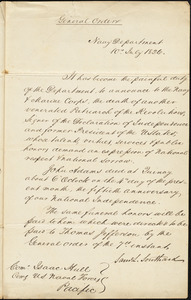 General Order
Navy Department
10th July 1826.
It has become the painful duty
of the Department to announce to the Navy
& Marine Corps, the death of another
venerated Patriarch of the Revolution,
Signer of the Declaration of Independence
and former President of the U States,
whose talents virtues services & public
honor demand an expression of national
respect & national sorrow.
John Adams died at Quincy
about 6 O'Clock on the 4th day of the present
month, the fiftieth anniversary,
of our National Independence.
The same funeral honors will be
paid to him which were directed to be
paid to Thomas Jefferson by the
General order of the 7th instant.
Saml L. Southard
Comr Isaac Hull
Comg US Naval Forces
Pacific